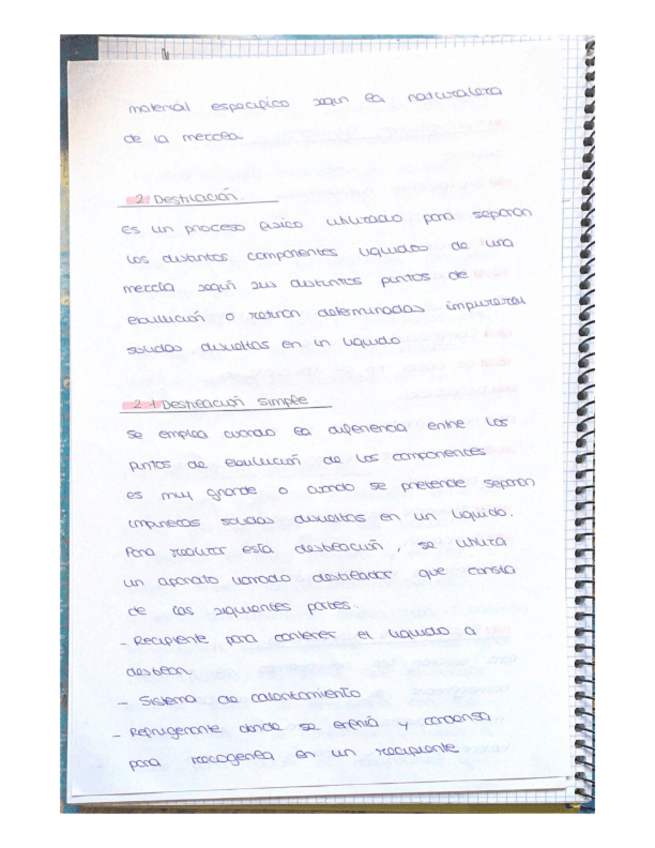 material especifico segun la naturaleza
de la mezcla.
2. Destilación
Es un proceso fisico utilizado para separar
los distintos componentes liquidos de una
mezcla según sus distintos puntos de
ebullición o retirar determinadas impurezas
solidas disueltas en un liquido
2.1 Destilación simple
Se emplea cuando la diferencia entre los
puntos de ebullición de los componentes
es muy grande o cuando se pretende separar
impurezas solidas disueltas en un liquido.
Para realizar esta destilación, se utiliza
un aparato llamado destilador que consta
de las siguientes partes.
- Recipiente para contener el liquido a
destilar
- Sistema de calentamiento
- Refrigerante donde se enfria y condensa
para recogerla en un recipiente